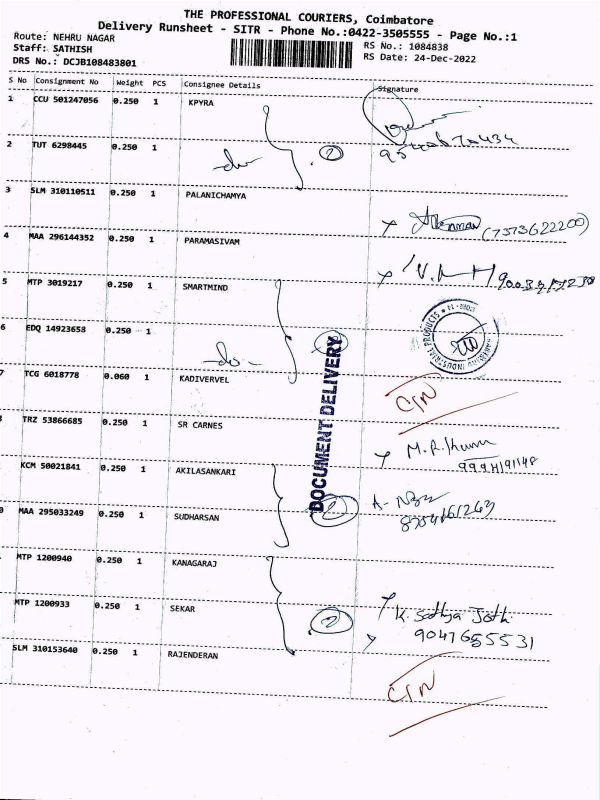 THE PROFESSIONAL COURIERS, Coimbatore
Delivery Runsheet - SITR - Phone No.:0422-3505555 - Page No.:1
Route: NEHRU NAGAR
Staff: SATHISH
DRS No.: DCJB108483801
RS No.: 1084838
RS Date: 24-Dec-2022
S No Consignment No Weight PCS Consignee Details Signature
1 CCU 501247056 0.250 1 KPYRA
2 TUT 6298445 0.250 1
2
3 SLM 310110511 0.250 1 PALANICHAMYA
(7373622200)
4 MAA 296144352 0.250 1 PARAMASIVAM
5 MTP 3019217 0.250 1 SMARTMIND
6 EDQ 14923658 0.250 1
7 TCG 6018778 0.060 1 KADIVERVEL
DOCUMENT DELIVERY
TRZ 53866685 0.250 1 SR CARNES
M.R.Kumar
KCM 50021841 0.250 1 AKILASANKARI
MAA 295033249 0.250 1 SUDHARSAN
2
MTP 1200940 0.250 1 KANAGARAJ
MTP 1200933 0.250 1 SEKAR
2
K. Sathya Joth
9047655531
SLM 310153640 0.250 1 RAJENDERAN